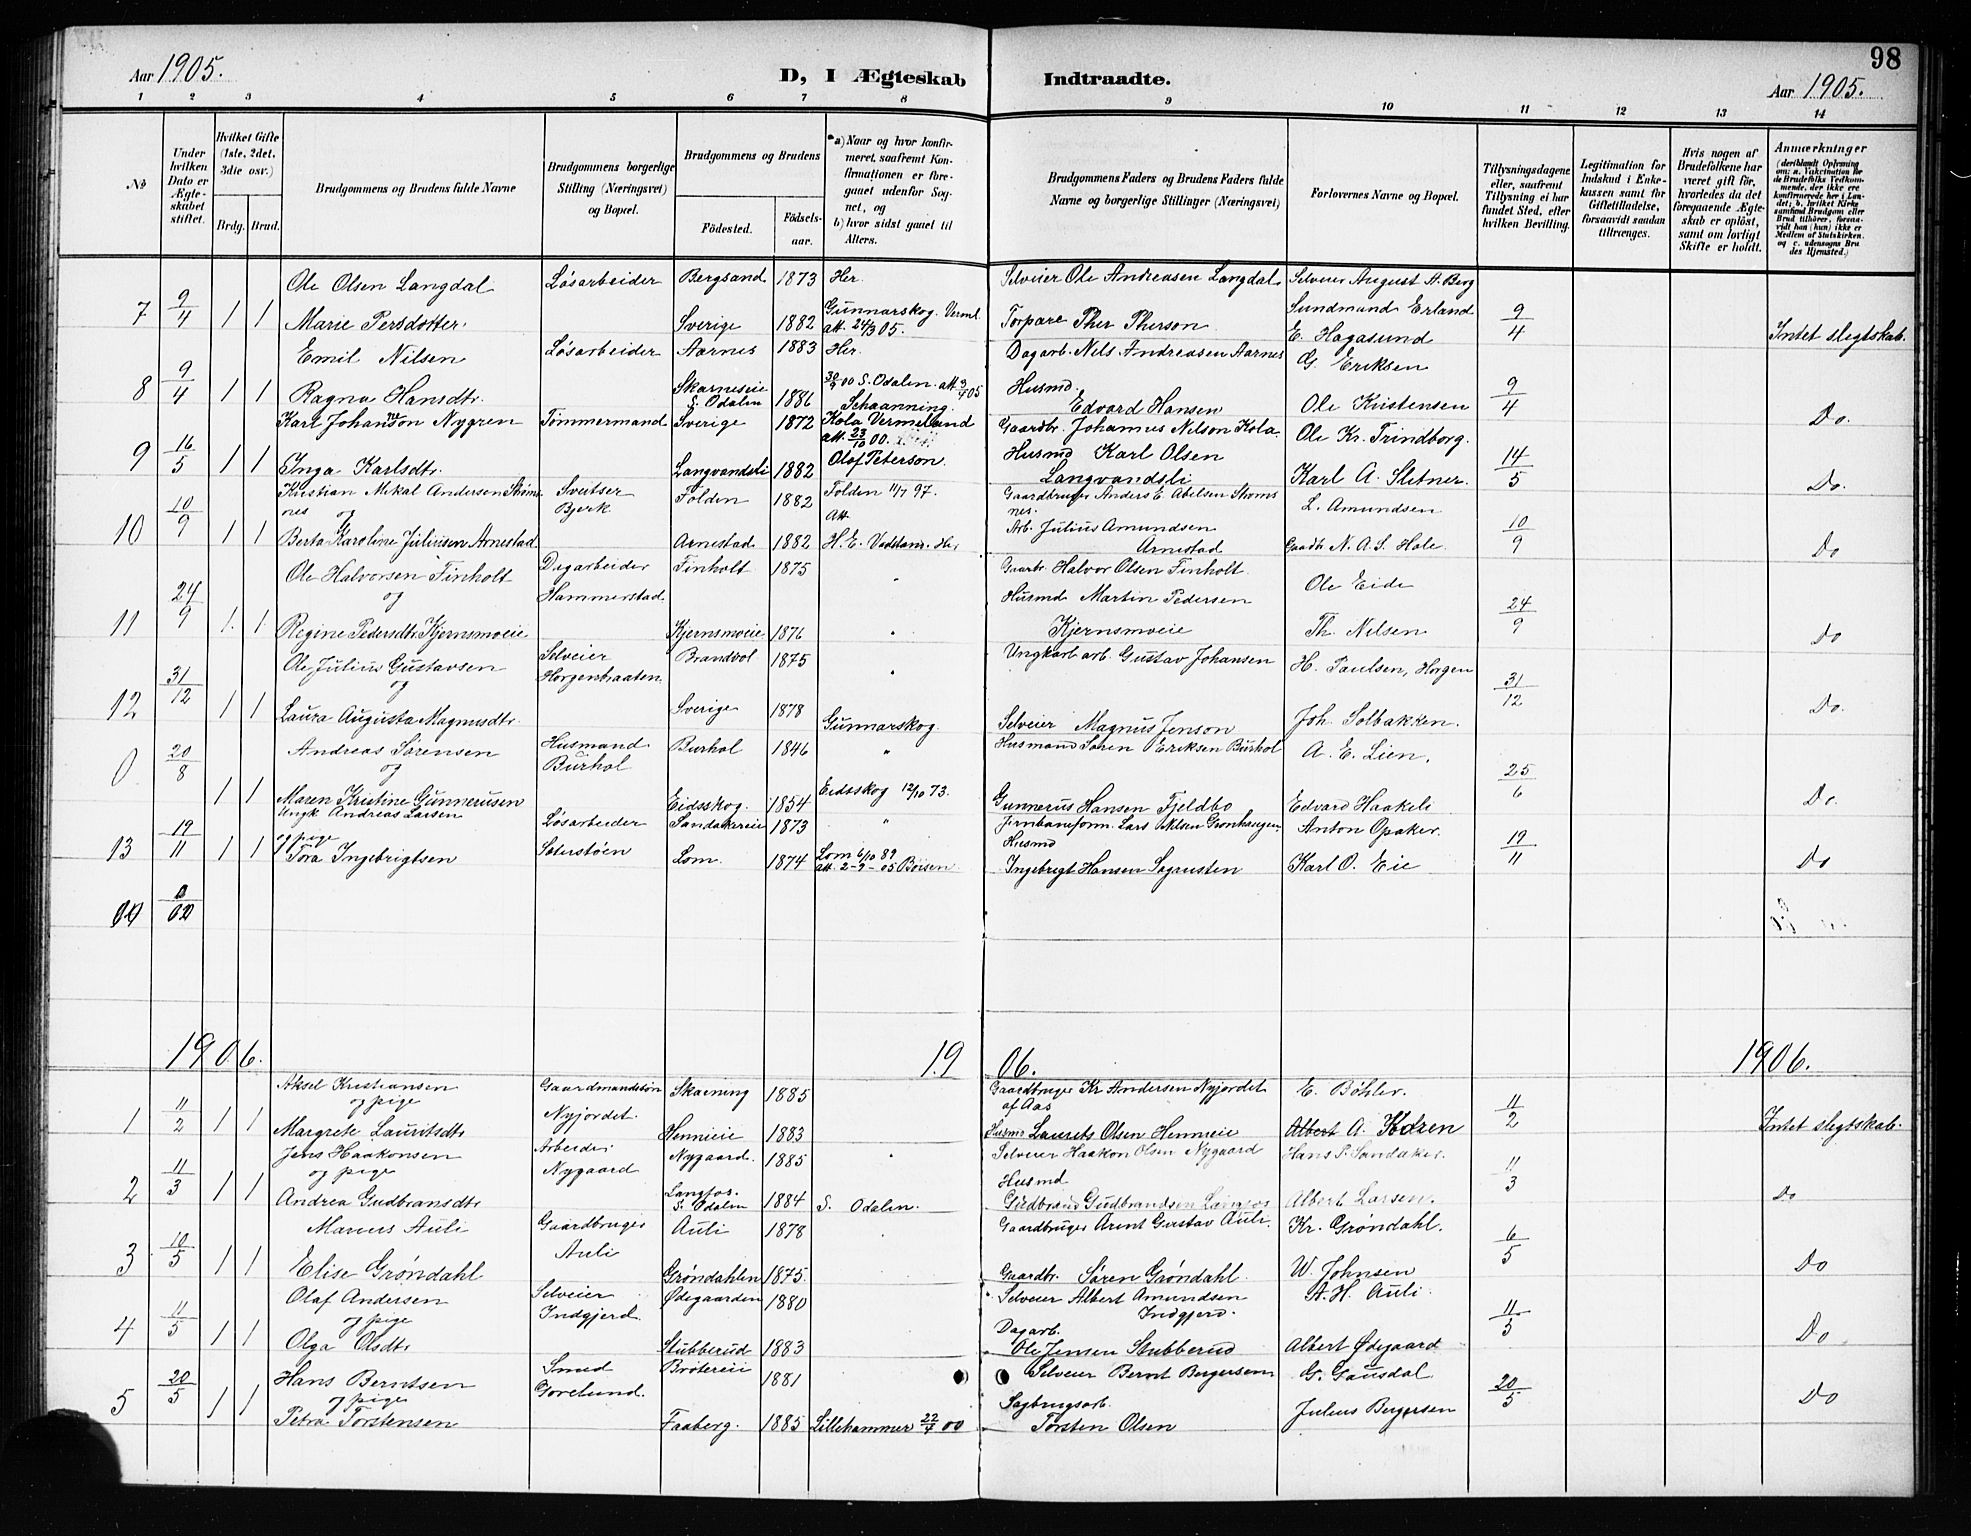 98
Aar 1905. D, I Ægteskab Indtraadte. Aar 1905.
1 2 3 4 5 6 7 8 9 10 11 12 13 14
No
Under hvilken Dato er Ægteskabet stiftet.
Hvilket Gifte (1ste, 2det, 3die osv.)
Brdg. Brud.
Brudgommens og Brudens fulde Navne
Brudgommens borgerlige Stilling (Næringsvei) og Bopæl.
Brudgommens og Brudens
Fødested. Fødselsaar.
a) Naar og hvor konfirmeret, saafremt Konfirmationen er foregaaet udenfor Sognet, og
b) hvor sidst gaaet til Alters.
Brudgommens Faders og Brudens Faders fulde Navne og borgerlige Stillinger (Næringsvei)
Forlovernes Navne og Bopæl.
Tillysningsdagene eller, saafremt Tillysning ei har fundet Sted, efter hvilken Bevilling.
Legitimation for Indskud i Enkekassen samt for Giftetilladelse, forsaavidt saadan tiltrænges.
Hvis nogen af Brudefolkene har været gift før, hvorledes da det foregaaende Ægteskab er opløst, samt om lovligt Skifte er holdt.
Anmærkninger (deriblandt Oplysning om: a. Vakcination for de Brudefolks Vedkommende, der ikke ere konfirmerede her i Landet; b. hvilket Kirkesamfund Brudgom eller Brud tilhører, forsaavidt han (hun) ikke er Medlem af Statskirken. og c. udensogns Brudes Hjemsted.)
Ole Olsen Langdal Løsarbeider Bergsand 1873 Her. Selveier Ole Andreasen Langdal Selveier August A. Berg
7 9/4 1 1 Marie Persdotter. Sverige 1882 Gunnarskog. Verml. att. 24/3 05. Torpare Pher Pherson Sundmund Erland E. Hagasund 9/4 Intet slegtskab.
Emil Nilsen Løsarbeider Aarnes 1883 Her. Dagarb. Nils Andreasen Aarnes G. Eriksen
8 9/4 1 1 Ragna Hansdtr. Skarnseie S. Odalen 1886 30/9 00 S. Odalen. att 3/4 05 Schaanning. Husmd. Edvard Hansen Ole Kristensen 9/4 Do.
Karl Johan Nygren Tömmermand Sverige 1872 Kola Vermeland att. 23/10 00. Gaardbr. Johannes Nilson Kola. Ole Kr. Trindborg.
9 16/5 1 1 Inga Karlsdtr. Langvandsli 1882 Olof Peterson. Husmd Karl Olsen Langvandsli Karl A. Sletner. 14/5 Do.
Kristian Mikal Andersen Strömsnes og Sveitser Bjerk Folden 1882 Folden 11/7 97. Att. Gaardbruger Anders E. Abelsen Strömsnes. L. Amundsen
10 10/9 1 1 Berta Karoline Juliusen Arnestad Arnestad 1882 H. E. Vadstein. Her Arb. Julius Amundsen Arnestad Gaardbr N. A. S. Hole. 10/9 Do
Ole Halvorsen Finholt og Dagarbeider Hammerstad Finholt 1875 " Gaarbr. Halvor Olsen Finholt. Ole Eide
11 24/9 1. 1 Regine Pedersdtr. Kjernsmoeie Kjernsmoeie 1876 " Husmd Martin Pedersen Kjernsmoeie Th. Nilsen 24/9 Do
Ole Julius Gustavsen og Selveier Horgenbraaten. Brandvol 1875 " Ungkarl arb. Gustav Johansen H. Paulsen, Horgen
12 31/12 1 1 Laura Augusta Magnusdtr. Sverige 1878 Gunnarskog. Selveier Magnus Jenson Joh. Solbakken. 31/12 Do.
Andreas Sörensen og Husmand Burhol Burhol 1846 " Husmand Sören Eriksen Burhol A. E. Lien.
0 20/8 1 1 Maren Kristine Gunnerusen Eidsskog. 1854 Eidsskog 12/10 73. Gunnerus Hansen Fjeldbo Edvard Haakeli 25/6 Do.
Ungk Andreas Larsen og pige Løsarbeider Sæterstöen Sandakereie 1873 " Jernbaneform. Lars Nilsen Grønhaugen Anton Opaker.
13 19/11 1 1 Tora Ingebrigtsen Lom. 1874 Lom 6/10 89 att. 2-9-05 Boisen. Husmd Ingebrigt Hansen Sagrusten Karl O. Eie 19/11 Do
1906. 1906. 1906.
Aksel Kristiansen og pige Gaardmandssön Nyjordet. Skaening 1885 Gaardbruger Kr Andersen Nyjordet af Aas E. Böhler.
1 11/2 1 1 Margrete Lauritsdtr Hennieie 1883 Husmd Laurits Olsen Hennieie Albert A. Kordzen 11/2 Intet slegtskab.
Jens Haakonsen og pige Arbeider Nygaard Nygaard. 1885 " Selveier Haakon Olsen Nygaard Hans P. Sandaker.
2 11/3 1 1 Andrea Gudbransdtr Langfos. S. Odalen 1884 S. Odalen. Husmd Gudbrand Gudbrandsen Langfos Albert Larsen. 11/3 Do
Marius Auli Gaardbruger Auli Auli 1878 Gaardbruger Arnt Gustav Auli. Kr. Grøndahl.
3 10/5 1 1 Elise Grøndahl Grøndahlen 1875. Gaardbr. Sören Grøndahl. W. Johnsen 6/5 Do
Olaf Andersen og pige Selveier Indgjerd. Ødegaarden 1880 Selveier Albert Amundsen Indgjerd. A. H. Auli.
4 11/5 1 1 Olga Olsdtr Stubberud 1883 Dagarb. Ole Jensen Stubberud Albert Ødegaard 11/5 Do
Hans Berntsen og pige Smed Gorelund. Bröteeie 1881 Selveier Bernt Bergersen G. Gausdal
5 20/5 1 1 Petra Torstensen Faaberg. 1885 Lillehammer 22/4 00 Sagbrugsarb. Torsten Olsen Julius Bergersen 20/5 Do